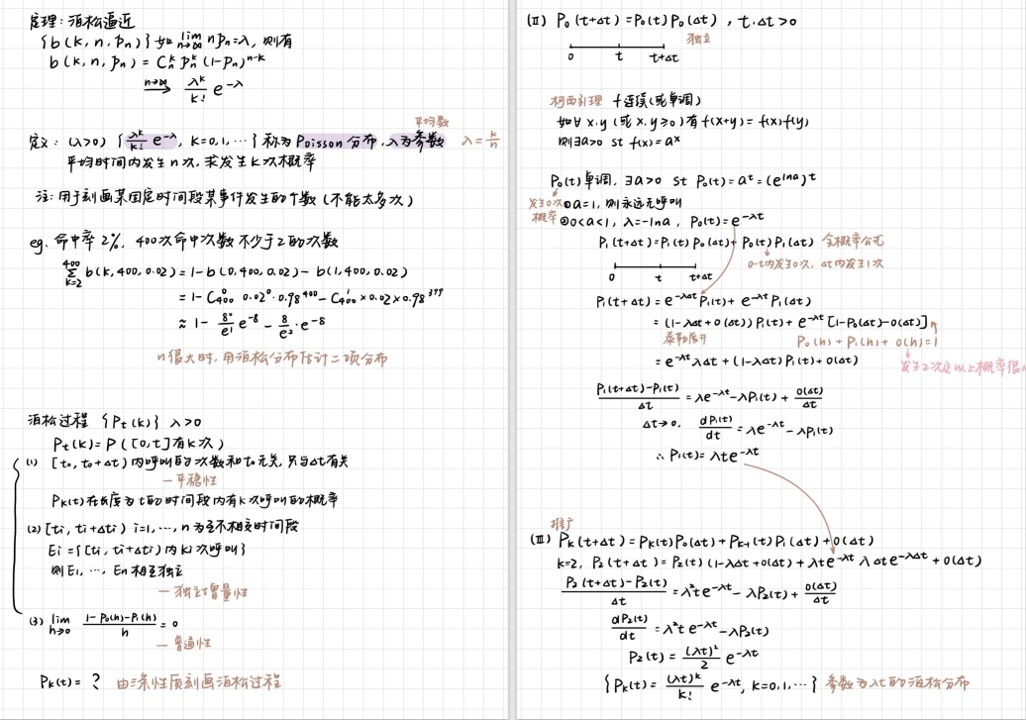 定理：泊松逼近
{b(k, n, pn)} 如 lim n→∞ npn=λ, 则有
b(k, n, pn) = Cₙᵏ pₙᵏ (1-pn)ⁿ⁻ᵏ
n→∞ ⟶ λᵏ/k! e^-λ
定义：(λ>0) {λᵏ/k! e^-λ, k=0,1,⋯} 称为 Poisson 分布, λ为参数 λ=k/n
平均数
平均时间内发生n次, 求发生k次概率
注：用于刻画某固定时间段某事件发生的个数 (不能太多次)
eg. 命中率2%, 400次命中次数不少于2的次数
400 Σ k=2 b(k,400,0.02) = 1-b(0,400,0.02) - b(1,400,0.02)
= 1- C⁰₄₀₀ 0.02⁰·0.98⁴⁰⁰ - C¹₄₀₀ ×0.02×0.98³⁹⁹
≈ 1- 8⁰/e¹ e⁻⁸ - 8/e²·e⁻⁸
n很大时, 用泊松分布估计二项分布
泊松过程 {Pt(k)} λ>0
Pt(k)=P([0,t]有k次)
(1) [t₀, t₀+Δt) 内呼叫的次数和t₀无关, 只与Δt有关
—平稳性
Pk(t)在长度为t的时间段内有k次呼叫的概率
(2) [ti, ti+Δti) i=1,⋯, n 为互不相交时间段
Ei ={[ti, ti+Δti)内ki次呼叫}
则E₁, ⋯, En相互独立
—独立增量性
(3) lim h→0 (1-P₀(h)-P₁(h))/h = 0
—普通性
Pk(t)= ? 由三条性质刻画泊松过程
(II) P₀(t+Δt)=P₀(t)P₀(Δt) , t.Δt>0
独立
0 t t+Δt
柯西引理 f连续(或单调)
如∀x.y (或x.y≥0)有f(x+y)=f(x)f(y)
则∃a>0 st f(x)=aˣ
P₀(t)单调, ∃a>0 st P₀(t)=aᵗ=(e^lna)ᵗ
发生0次概率
①a=1, 则永远无呼叫
②0<a<1, λ=-lna, P₀(t)=e^-λt
P₁(t+Δt)=P₁(t)P₀(Δt)+P₀(t)P₁(Δt) 全概率公式
0-t内发生0次, Δt内发生1次
0 t t+Δt
P₁(t+Δt)=e^-λΔt P₁(t)+ e^-λt P₁(Δt)
= (1-λΔt+o(Δt)) P₁(t)+ e^-λt [1-P₀(Δt)-o(Δt)]
泰勒展开 P₀(h)+P₁(h)+o(h)=1
= e^-λt λΔt+(1-λΔt)P₁(t)+o(Δt)
发生2次及以上概率很
(P₁(t+Δt)-P₁(t))/Δt = λe^-λt -λP₁(t)+ o(Δt)/Δt
Δt→0, dP₁(t)/dt =λe^-λt -λP₁(t)
∴ P₁(t)= λte^-λt
推广
(III) Pk(t+Δt)=Pk(t)P₀(Δt)+Pk-1(t)P₁(Δt)+o(Δt)
k=2, P₂(t+Δt)=P₂(t)(1-λΔt+o(Δt))+λte^-λt λΔte^-λΔt +o(Δt)
(P₂(t+Δt)-P₂(t))/Δt =λ²te^-λt -λP₂(t)+ o(Δt)/Δt
dP₂(t)/dt =λ²te^-λt -λP₂(t)
P₂(t)= (λt)²/2 e^-λt
{Pk(t)= (λt)ᵏ/k! e^-λt, k=0,1,⋯} 参数为λt的泊松分布